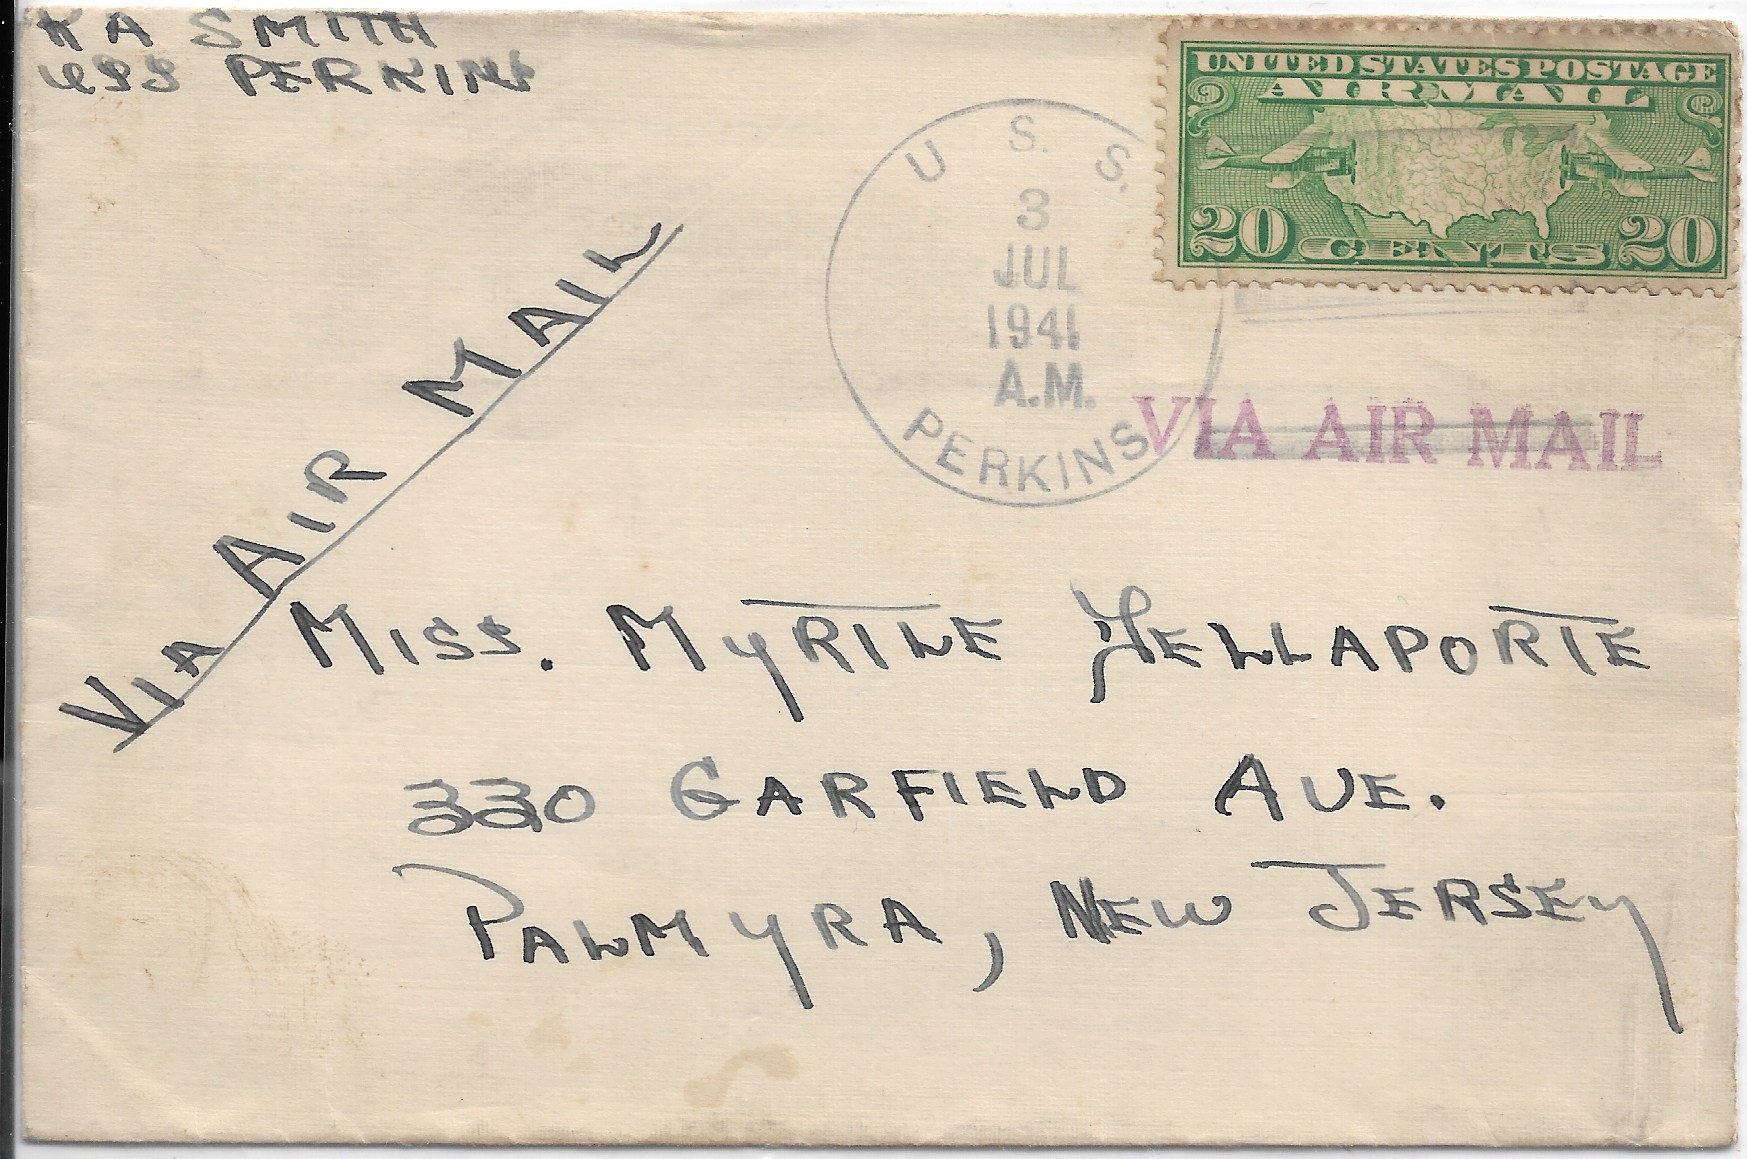 R A SMITH
USS PERKINS
UNITED STATES POSTAGE
AIR MAIL
20 CENTS 20
U. S. S.
3
JUL
1941
A.M.
PERKINS
VIA AIR MAIL
VIA AIR MAIL
MISS. MYRTLE YELLAPORTE
330 GARFIELD AVE.
PALMYRA, NEW JERSEY